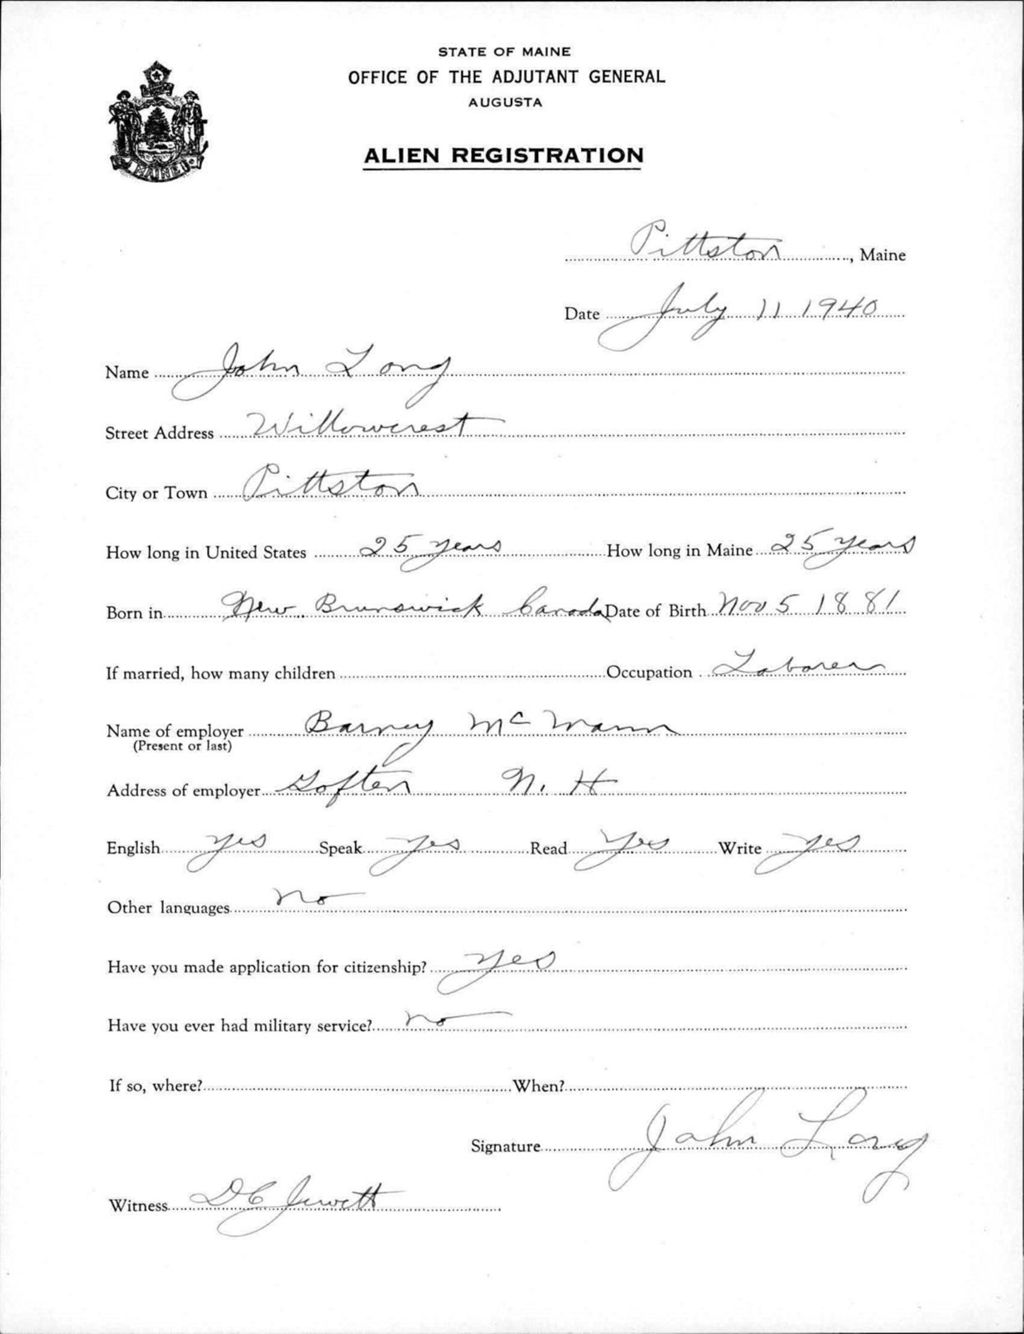 STATE OF MAINE
OFFICE OF THE ADJUTANT GENERAL
AUGUSTA
ALIEN REGISTRATION
MAINE
Pittston, Maine
Date July 11 1940
Name John Long
Street Address Willowcrest
City or Town Pittston
How long in United States 25 years How long in Maine 25 years
Born in New Brunswick Canada Date of Birth Nov 5 1881
If married, how many children Occupation Laborer
Name of employer Barney McMann
(Present or last)
Address of employer Goften N. H
English yes Speak yes Read Yes Write yes
Other languages no
Have you made application for citizenship? yes
Have you ever had military service? no
If so, where? When?
Signature John Long
Witness D C Jewett